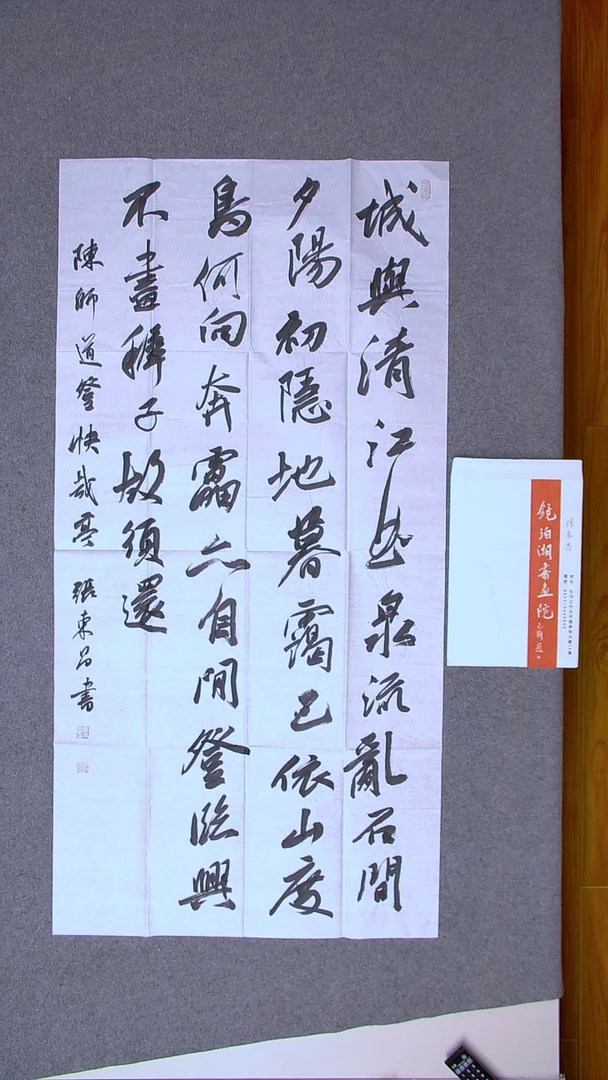 城與清江曲泉流亂石間
夕陽初隱地暮靄已依山度
鳥何向奔雲亦自閒登臨興
不盡稺子故須還
陳師道登快哉亭 張東昌書
鏡泊湖書画院